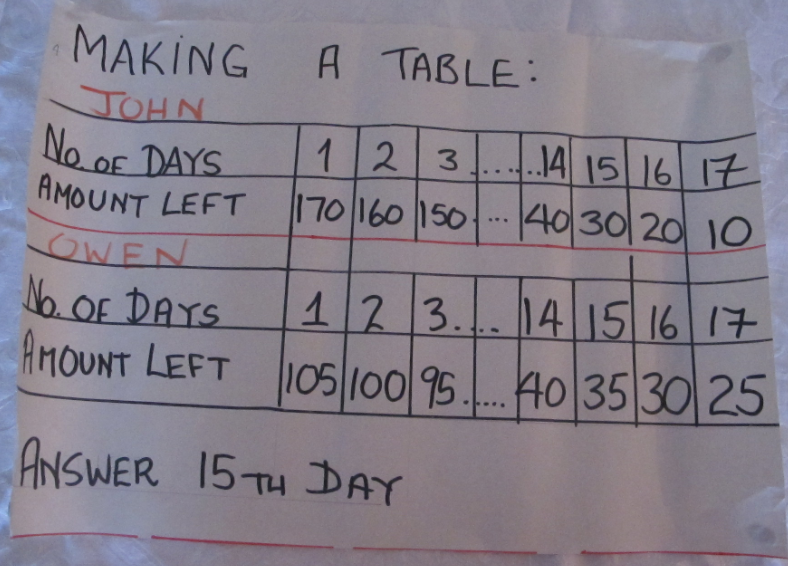 MAKING A TABLE:
JOHN
No. OF DAYS 1 2 3 ...... 14 15 16 17
AMOUNT LEFT 170 160 150. ... 40 30 20 10
OWEN
No. OF DAYS 1 2 3. ... 14 15 16 17
AMOUNT LEFT 105 100 95. .... 40 35 30 25
ANSWER 15TH DAY